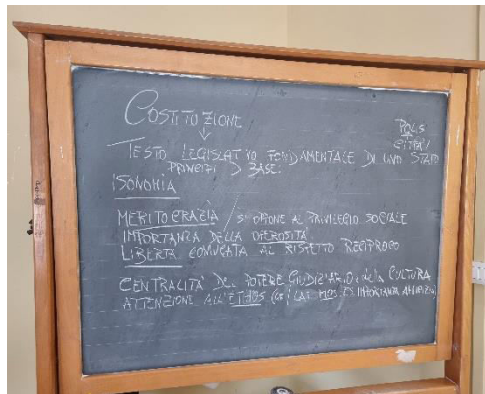 COSTITUZIONE
POLIS
CITTÀ/
TESTO LEGISLATIVO FONDAMENTALE DI UNO STATO
PRINCIPI BASE:
ISONOMIA
MERITOCRAZIA / SI OPPONE AL PRIVILEGIO SOCIALE
IMPORTANZA DELLA OPEROSITÀ
LIBERTÀ CONIUGATA AL RISPETTO RECIPROCO
CENTRALITÀ DEL POTERE GIUDIZIARIO e della CULTURA
ATTENZIONE ALL'ETHOS LAT. MOS ES. IMPORTANZA